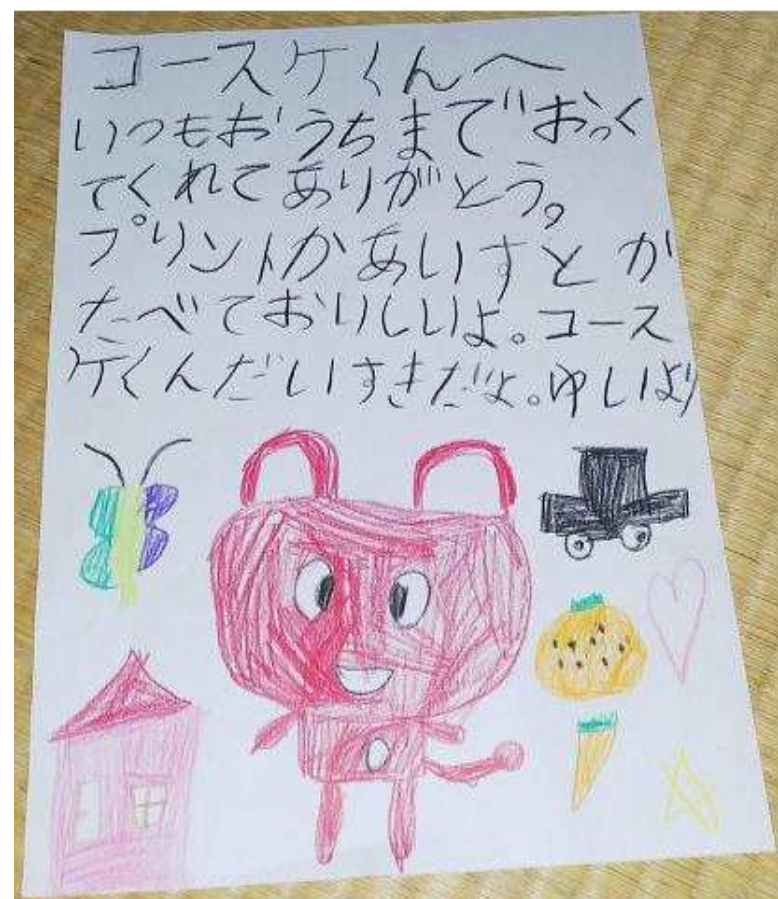 コースケくんへ
いつもおうちまでおっく
てくれてありがとう。
プリントかあいすとか
たべておりしいよ。コース
ケくんだいすきだよ。ゆいより